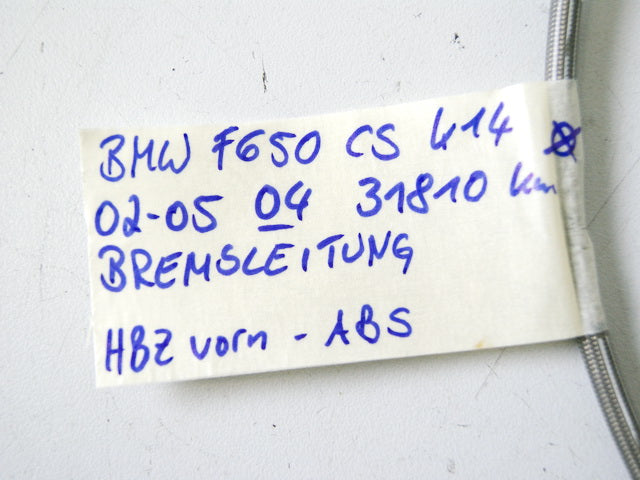 BMW F650 CS K14
02-05 04 31810 km
BREMSLEITUNG
HBZ vorn - ABS